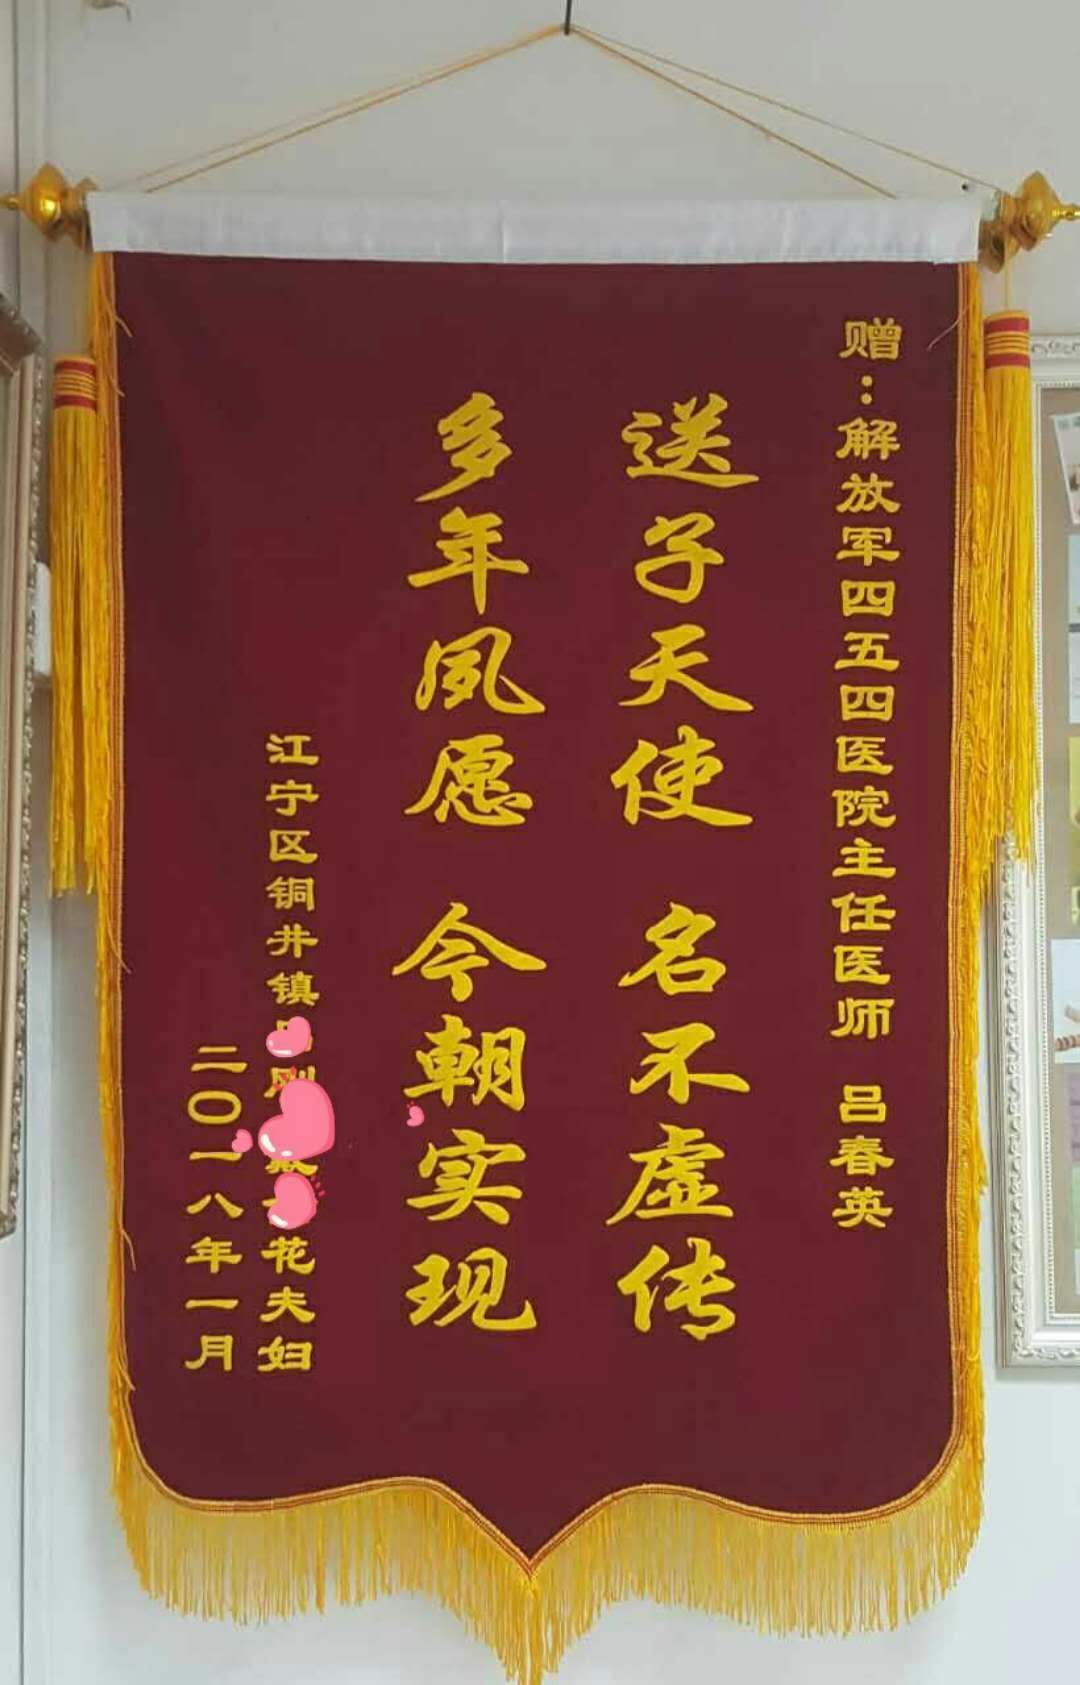 赠：解放军四五四医院主任医师 吕春英
送子天使 名不虚传
多年夙愿 今朝实现
江宁区铜井镇 花夫妇
二〇一八年一月